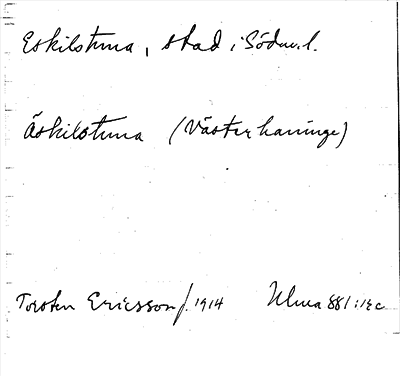 Eskilstuna, stad i Söderm.l.
Äskilstuna (Västerhaninge)
Torsten Ericsson f. 1914 Ulma 881:1 c